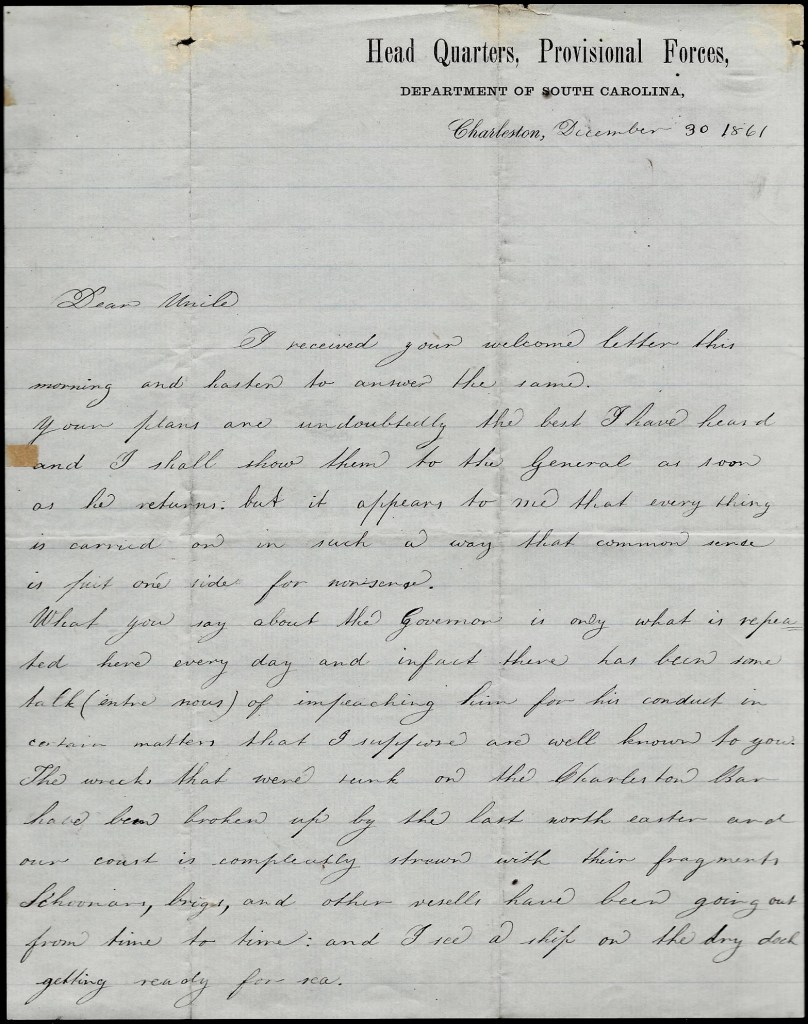 Head Quarters, Provisional Forces,
DEPARTMENT OF SOUTH CAROLINA,
Charleston, December 30 1861
Dear Uncle
I received your welcome letter this
morning and hasten to answer the same.
Your plans are undoubtedly the best I have heard
and I shall show them to the General as soon
as he returns: but it appears to me that every thing
is carried on in such a way that common sense
is put one side for nonsense.
What you say about the Governor is only what is repea-
ted here every day and infact there has been some
talk (entre nous) of impeaching him for his conduct in
certain matters that I suppose are well known to you.
The wrecks that were sunk on the Charleston Bar
have been broken up by the last north easter and
our coast is compleatly strawn with their fragments
Schooners, brigs, and other vesells have been going out
from time to time: and I see a ship on the dry dock
getting ready for sea.